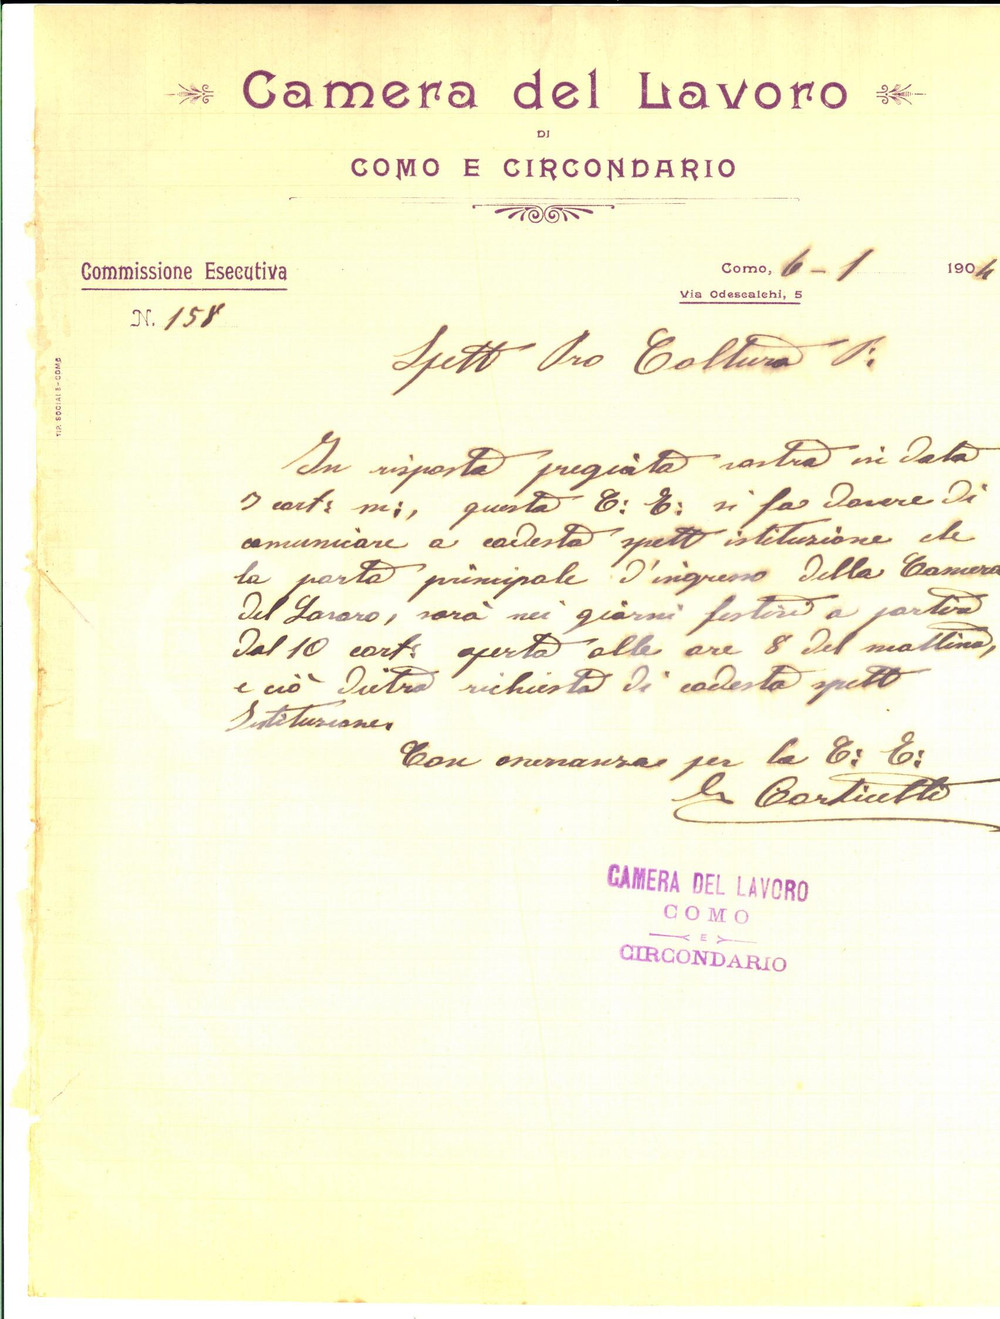 Camera del Lavoro
DI
COMO E CIRCONDARIO
Commissione Esecutiva
Como, 6-1 1904
Via Odescalchi, 5
N. 158
TIP. SOCIALE-COMO
Spett Pro Coltura P:
In risposta pregiata vostra in data
cort: m:, questa C: E: si fa dovere di
comunicare a codesta spett istituzione che
la porta principale d'ingresso della Camera
del Lavoro, sarà nei giorni festivi a partire
dal 10 cort: aperta alle ore 8 del mattino,
e ciò dietro richiesta di codesta spett
Istituzione.
Con osservanza per la C: E:
CAMERA DEL LAVORO
COMO
E
CIRCONDARIO